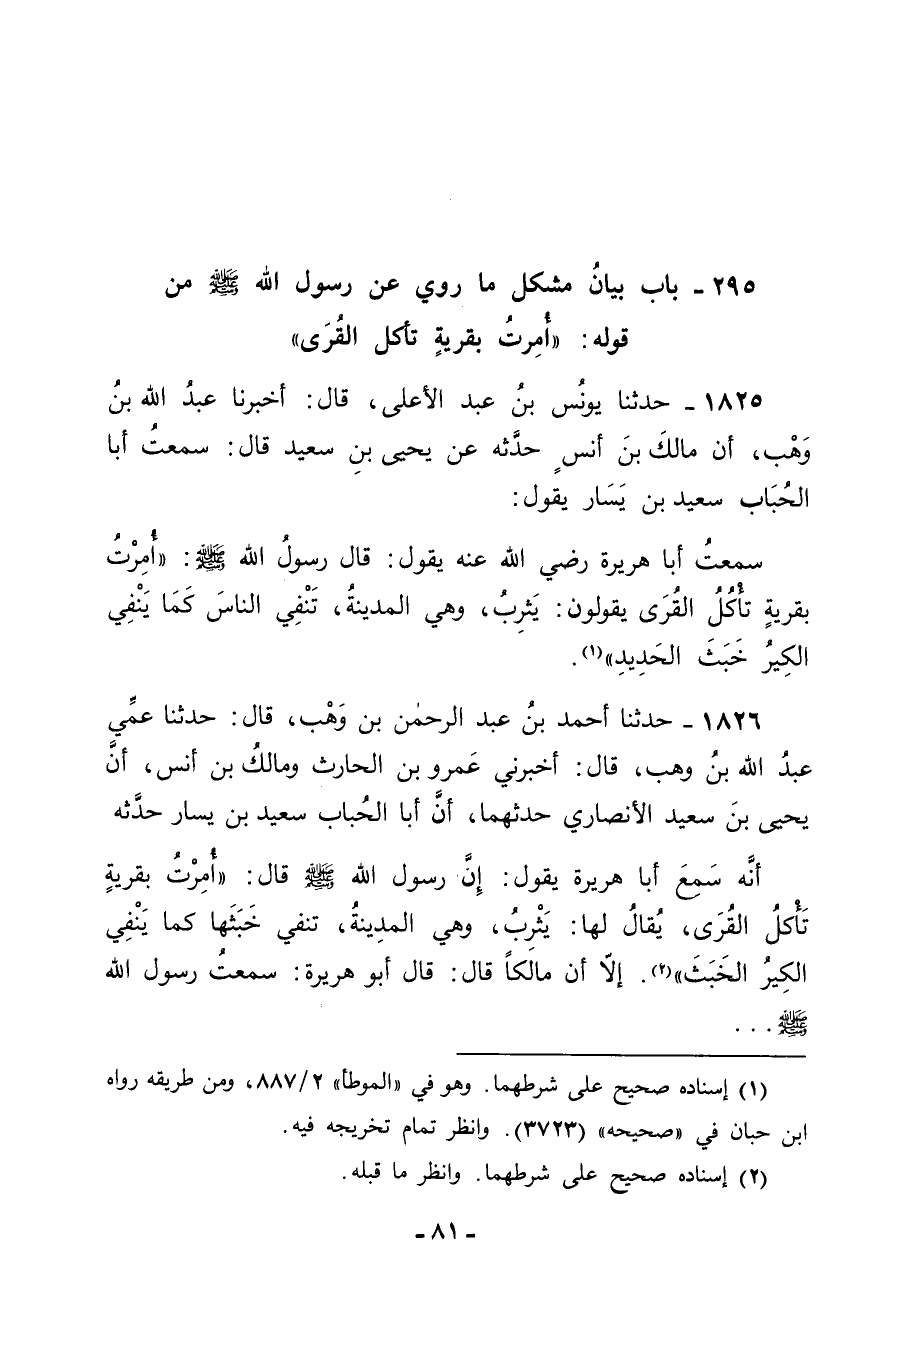 ٢٩٥ ـ باب بيانُ مشكل ما روي عن رسول الله ﷺ من
قوله: «أُمِرتُ بقريةٍ تأكل القُرَى»
١٨٢٥ ـ حدثنا يونُس بنُ عبد الأعلى، قال: أخبرنا عبدُ الله بنُ
وَهْب، أن مالكَ بنَ أنسٍ حدَّثه عن يحيى بنِ سعيد قال: سمعتُ أبا
الحُبَاب سعيد بن يَسَار يقول:
سمعتُ أبا هريرة رضي الله عنه يقول: قال رسولُ الله ﷺ: «أُمِرْتُ
بقريةٍ تأْكُلُ القُرَى يقولون: يَثرِبُ، وهي المدينةُ، تَنْفِي الناسَ كَمَا يَنْفِي
الكِيرُ خَبَثَ الحَدِيدِ»(١).
١٨٢٦ ـ حدثنا أحمد بنُ عبد الرحمٰن بن وَهْب، قال: حدثنا عمِّي
عبدُ الله بنُ وهب، قال: أخبرني عَمرو بن الحارث ومالكُ بن أنس، أنَّ
يحيى بنَ سعيد الأنصاري حدثهما، أنَّ أبا الحُباب سعيد بن يسار حدَّثه
أنَّه سَمِعَ أبا هريرة يقول: إِنَّ رسول الله ﷺ قال: «أُمِرْتُ بقريةٍ
تَأْكلُ القُرَى، يُقالُ لها: يَثْرِبُ، وهي المدِينةُ، تنفي خَبَثَها كما يَنْفِي
الكِيرُ الخَبَثَ»(٢). إلّا أن مالكاً قال: قال أبو هريرة: سمعتُ رسول الله
ﷺ . . .
(١) إسناده صحيح على شرطهما. وهو في «الموطأ» ٨٨٧/٢، ومن طريقه رواه
ابن حبان في «صحيحه» (٣٧٢٣). وانظر تمام تخريجه فيه.
(٢) إسناده صحيح على شرطهما. وانظر ما قبله.
ـ ٨١ ـ